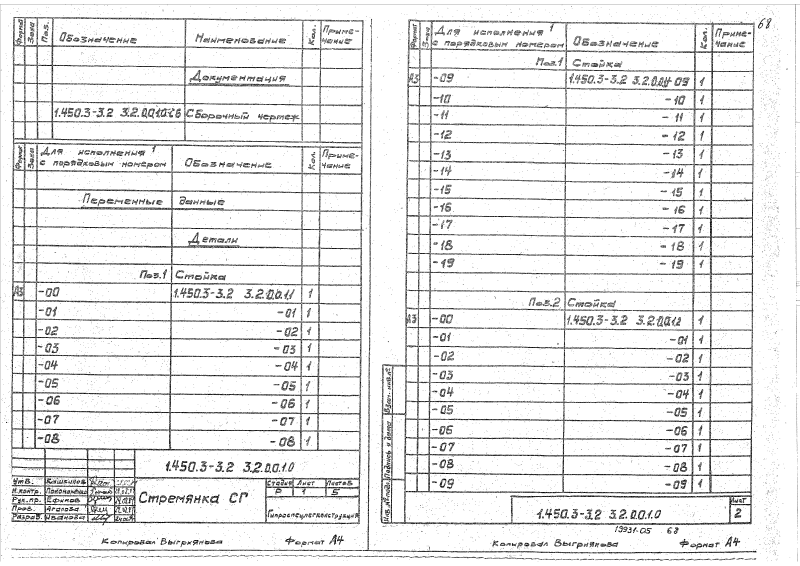 Формат Зона Поз. Обозначение Наименование Кол. Приме-чание
Документация
1.450.3-3.2 3.2.0.0.1.0 СБ Сборочный чертеж
Формат Зона Для исполнения 1 с порядковым номером Обозначение Кол. Приме-чание
Переменные данные
Детали
Поз.1 Стойка
А3 -00 1.450.3-3.2 3.2.0.0.1.1 1
-01 -01 1
-02 -02 1
-03 -03 1
-04 -04 1
-05 -05 1
-06 -06 1
-07 -07 1
-08 -08 1
1.450.3-3.2 3.2.0.0.1.0
Утв. Кашкинов
Н.контр.
Рук.пр. Ефимов
Пров. Агапова
Разраб. Иванова
Стремянка СГ
Стадия Лист Листов
Р 1 5
Копировал Выгриянова Формат А4
68
Формат Зона Для исполнения 1 с порядковым номером Обозначение Кол. Приме-чание
Поз.1 Стойка
А3 -09 1.450.3-3.2 -09 1
-10 -10 1
-11 -11 1
-12 -12 1
-13 -13 1
-14 -14 1
-15 -15 1
-16 -16 1
-17 -17 1
-18 -18 1
-19 -19 1
Поз.2 Стойка
А3 -00 1.450.3-3.2 3.2.0.0.1.2 1
-01 -01 1
-02 -02 1
-03 -03 1
-04 -04 1
-05 -05 1
-06 -06 1
-07 -07 1
-08 -08 1
-09 -09 1
Инв. № подл. Подпись и дата Взам. инв. №
1.450.3-3.2 3.2.0.0.1.0
Лист
2
19931-05 68
Копировал Выгриянова Формат А4